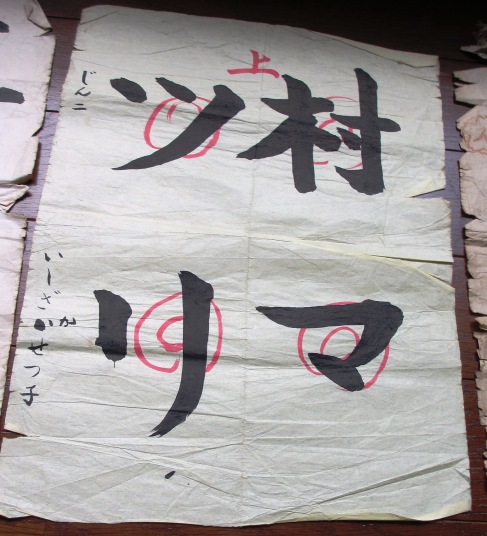 上
村マ
ツリ
じん二
いしざかせつ子